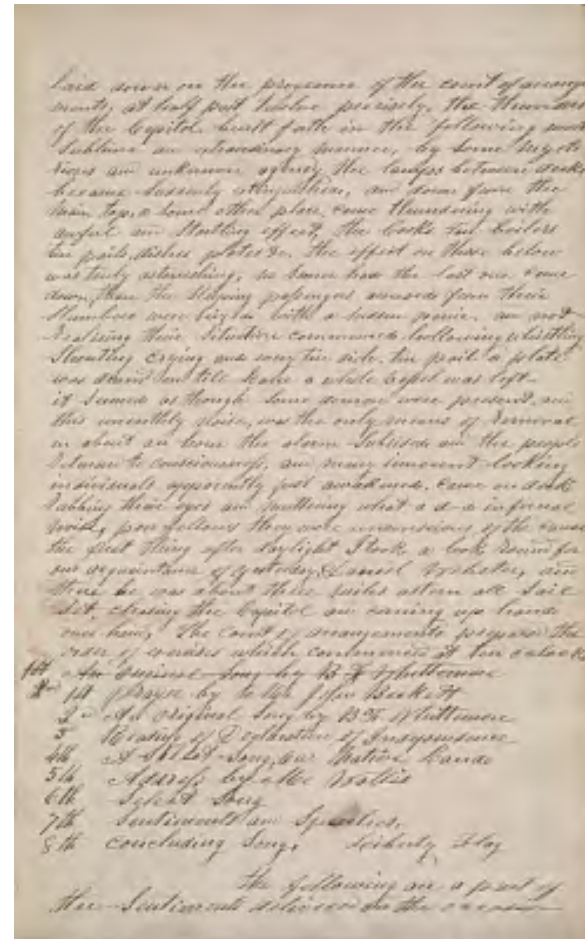 laid down on the programme of the comt of arrange
ments, at half past twelve precisely, the thunders
of the Capitol burst forth in the following most
sublime and extraordinary manner, by some myste
rious and unknown agency the lamps between decks
became suddenly extinguished, and down from the
main top, or some other place, came thundering with
awful and startling effect, the Cooks tin boilers
tin pails, dishes plates &c. the effect on those below
was truly astonishing, no sooner had the last one come
down, than the sleeping passengers aroused from their
slumbers were seized with a sudden panic, and not
realising their situation commenced hallowing whistling
shouting crying and every tin dish, tin pail or plate
was till a whole vessel was left
it seemed as though some demon were present, and
this unearthly noise, was the only means of removal
in about an hour the alarm subsided and the people
returned to consciousness, and many innocent looking
individuals apparently just awakened, came on deck
rubbing their eyes and muttering what a d-d infernal
noise, poor fellows they were unconscious of the cause
the first thing after daylight I took a look round for
our acquaintance of yesterday, Daniel Webster, and
there he was about three miles astern all sail
set, chasing the Capitol and coming up hand
over hand, the Comt of arrangements prepared the
order of exercises which commenced at ten oclock
1st An original song by B F Whittemore
1st Prayer by Beckett
2d An original Song by B F Whittemore
3 Reading of Declaration of Independence
4th A Select Song, by Native Band
5th Address, by Mr Wallis
6th Select Song
7th Sentiments and Speeches,
8th Concluding Song, Liberty Flag
the following are a part of
the Sentiments delivered on the occasion